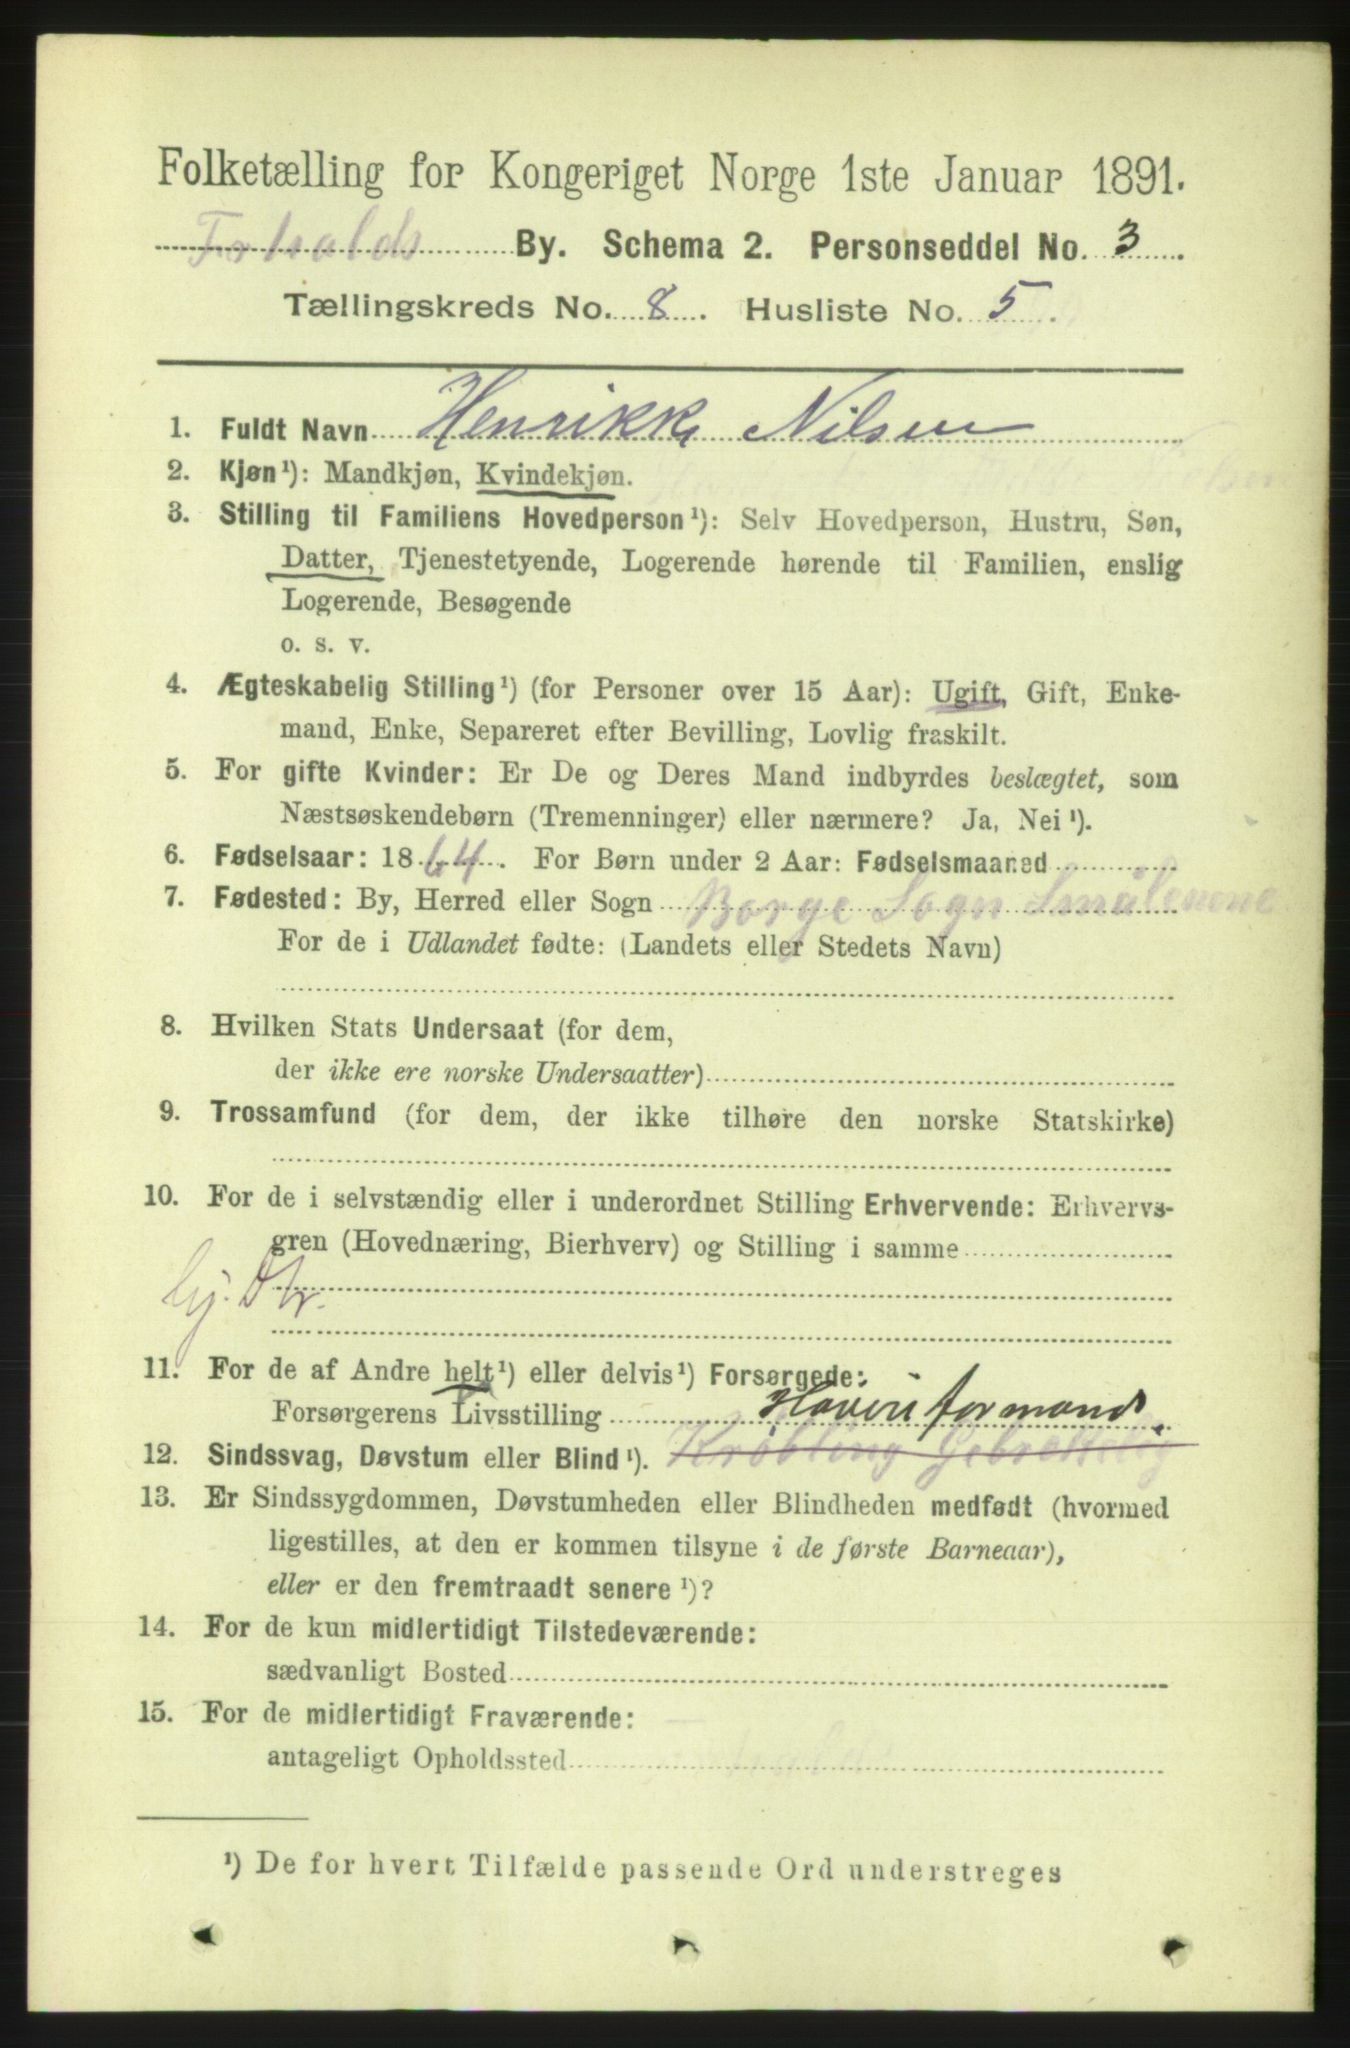 Folketælling for Kongeriget Norge 1ste Januar 1891.
By. Schema 2. Personseddel No. 3
Tællingskreds No. 8. Husliste No. 5.
1. Fuldt Navn Henrikke Nilsen
2. Kjøn¹): Mandkjøn, Kvindekjøn.
3. Stilling til Familiens Hovedperson¹): Selv Hovedperson, Hustru, Søn,
Datter, Tjenestetyende, Logerende hørende til Familien, enslig
Logerende, Besøgende
o. s. v.
4. Ægteskabelig Stilling¹) (for Personer over 15 Aar): Ugift, Gift, Enke-
mand, Enke, Separeret efter Bevilling, Lovlig fraskilt.
5. For gifte Kvinder: Er De og Deres Mand indbyrdes beslægtet, som
Næstsøskendebørn (Tremenninger) eller nærmere? Ja, Nei¹).
6. Fødselsaar: 1864. For Børn under 2 Aar: Fødselsmaaned
7. Fødested: By, Herred eller Sogn Borge Sogn Smålenene
For de i Udlandet fødte: (Landets eller Stedets Navn)
8. Hvilken Stats Undersaat (for dem,
der ikke ere norske Undersaatter)
9. Trossamfund (for dem, der ikke tilhøre den norske Statskirke)
10. For de i selvstændig eller i underordnet Stilling Erhvervende: Erhvervs-
gren (Hovednæring, Bierhverv) og Stilling i samme
hj. Dtr.
11. For de af Andre helt¹) eller delvis¹) Forsørgede:
Forsørgerens Livsstilling Høveriformand.
12. Sindssvag, Døvstum eller Blind¹).
13. Er Sindssygdommen, Døvstumheden eller Blindheden medfødt (hvormed
ligestilles, at den er kommen tilsyne i de første Barneaar),
eller er den fremtraadt senere¹)?
14. For de kun midlertidigt Tilstedeværende:
sædvanligt Bosted
15. For de midlertidigt Fraværende:
antageligt Opholdssted
¹) De for hvert Tilfælde passende Ord understreges